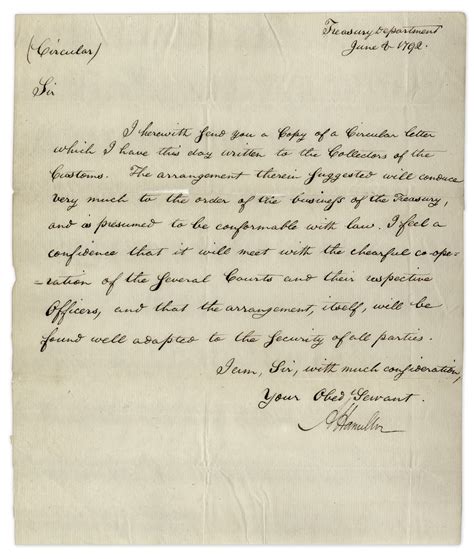 Treasury Department
June 2 1792.
(Circular)
Sir
I herewith Send you a Copy of a Circular letter
which I have this day written to the Collectors of the
Customs. The arrangement therein Suggested will conduce
very much to the order of the business of the Treasury,
and is presumed to be conformable with law. I feel a
confidence that it will meet with the chearful co-ope-
-ration of the Several Courts and their respective
Officers, and that the arrangement, itself, will be
found well adapted to the Security of all parties.
I am, Sir, with much consideration,
Your Obed.t Servant.
A Hamilton